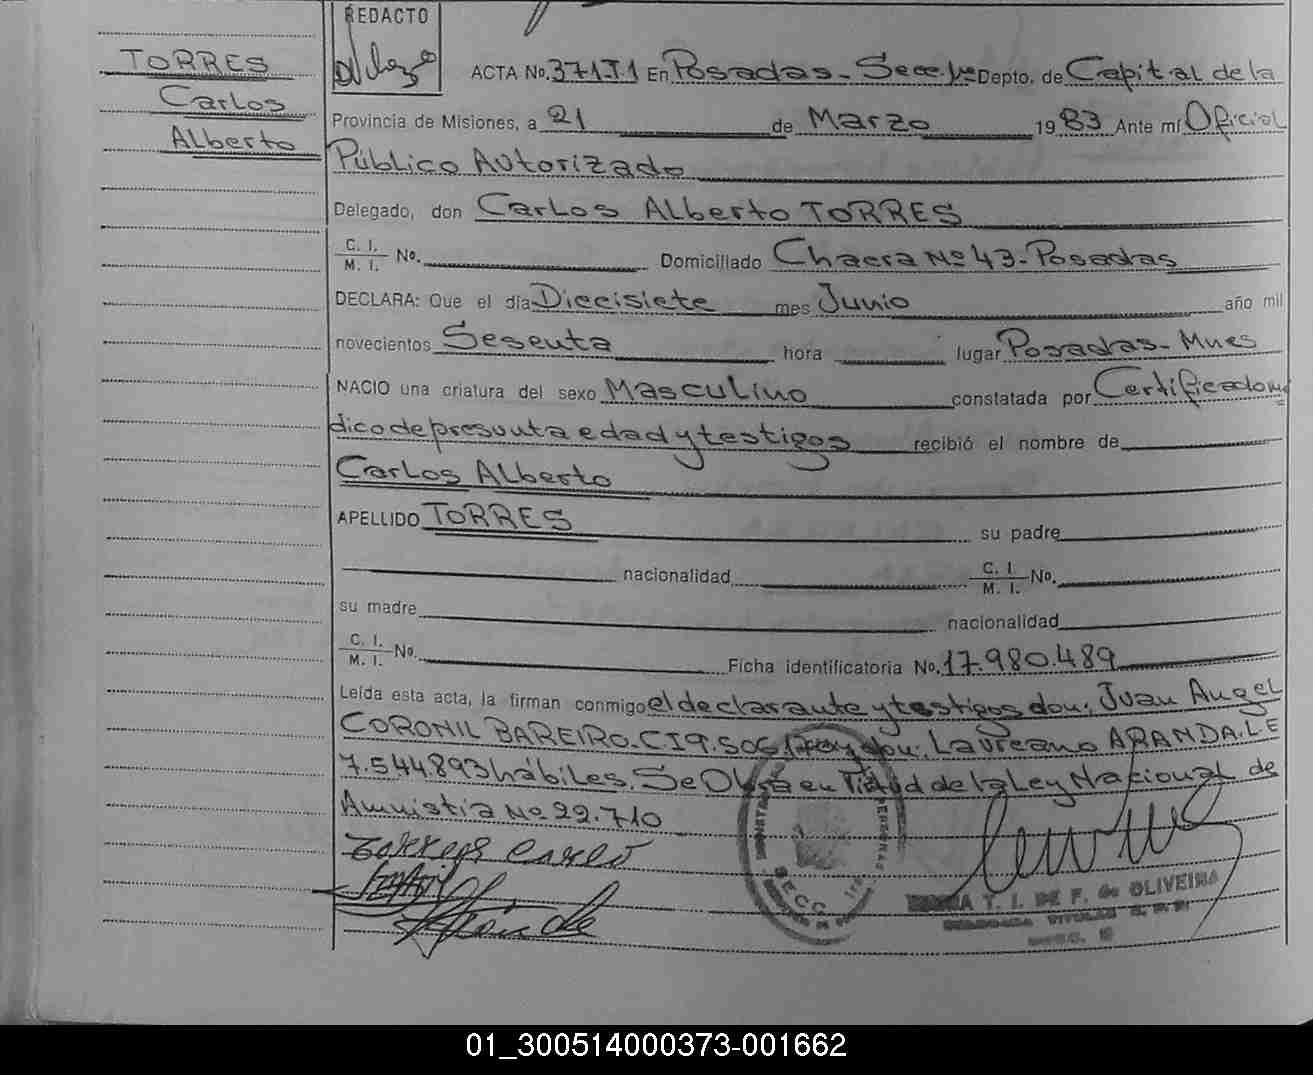 REDACTO
TORRES
Carlos
Alberto
ACTA No. 371 T1 En Posadas - Secc. 1ra Depto. de Capital de la
Provincia de Misiones, a 21 de Marzo 1983 Ante mí Oficial
Público Autorizado
Delegado, don Carlos Alberto TORRES
C. I.
M. I. No. Domiciliado Chacra Nº 43 - Posadas
DECLARA: Que el día Diecisiete mes Junio año mil
novecientos Sesenta hora lugar Posadas - Mnes
NACIO una criatura del sexo Masculino constatada por Certificado mé
dico de presunta edad y testigos recibió el nombre de
Carlos Alberto
APELLIDO TORRES su padre
nacionalidad C. I.
M. I. No.
su madre nacionalidad
C. I.
M. I. No. Ficha identificatoria No. 17.980.489
Leída esta acta, la firman conmigo el declarante y testigos don: Juan Angel
CORONIL BAREIRO - C I 9.506 y don: Laureano ARANDA. L E
7.544.893 hábiles. Se Obra en de la Ley Nacional de
Amnistía Nº 22.710
Torres Carlo
SECC.
T. I. DE F. de OLIVEIRA
01_300514000373-001662